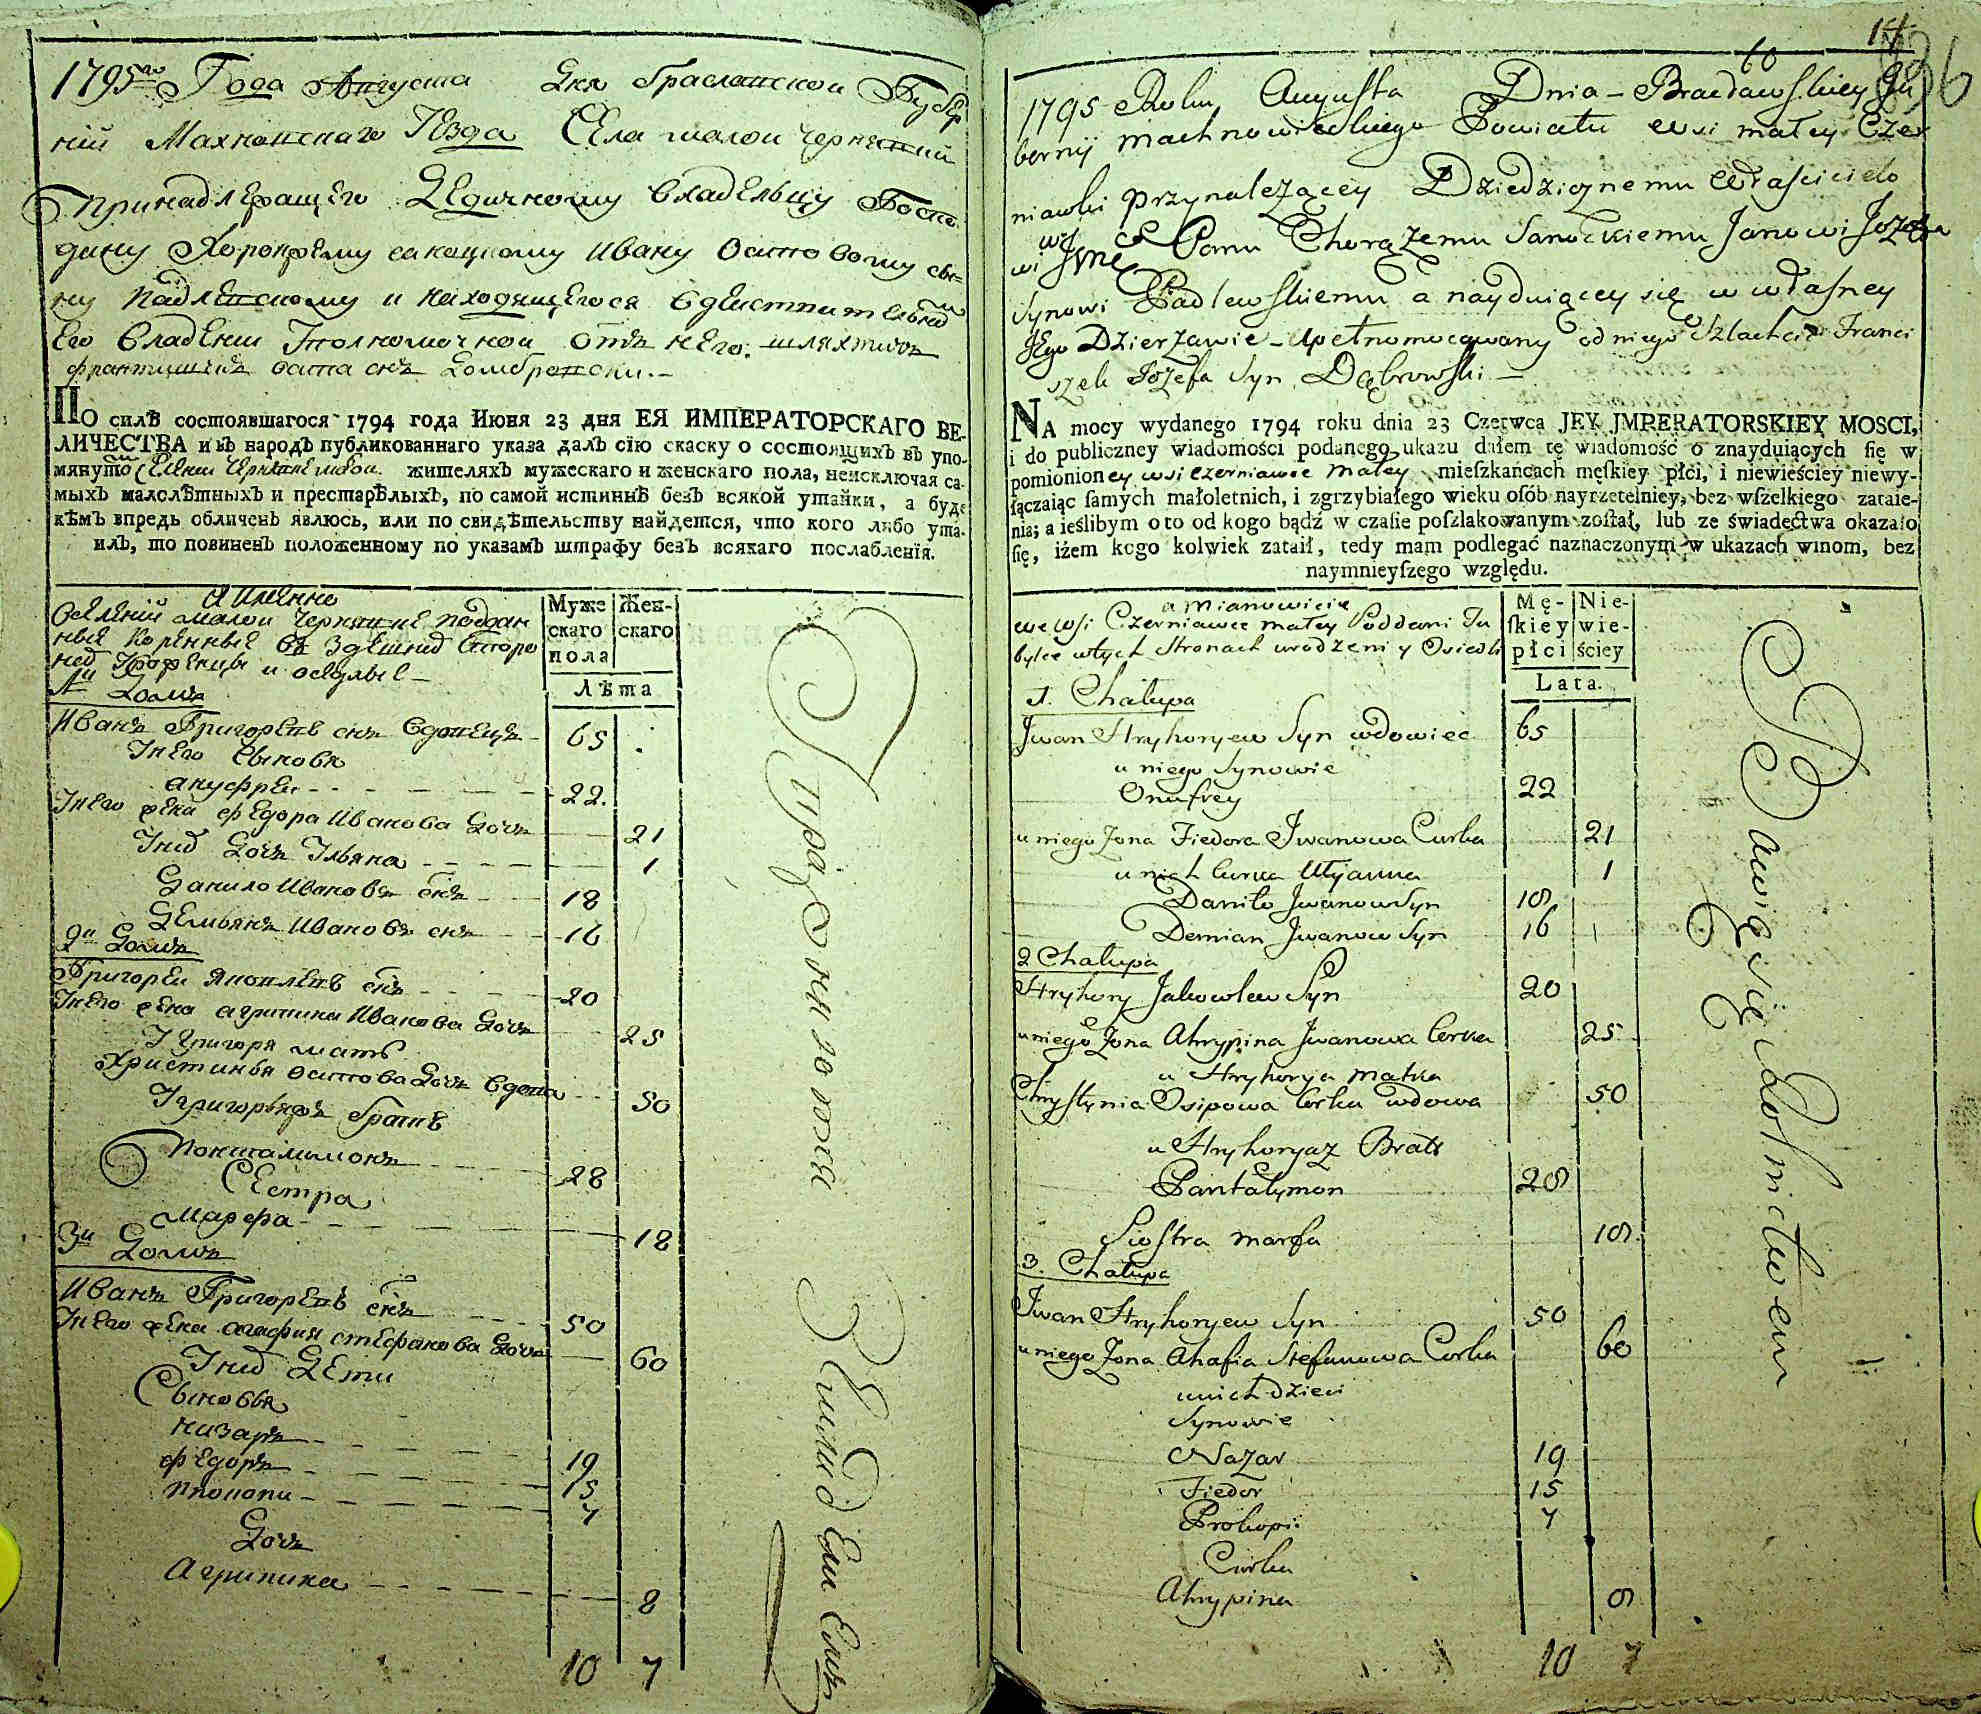 1795го Года Августа Дня Браславской Губер
ніи Махновскаго Уезда Села малой Чернявки
Принадлежащего Дедичному Владельцу Госпо
дину Хоронжему саноцкому Ивану Осиповому сы=
ну Падлевскому и находящегося вдействительном
Его Владении Уполномочной отъ него шляхтичъ
Францишекъ осипа снъ Домбровски.—
ПО силѣ состоявшагося 1794 года Июня 23 дня ЕЯ ИМПЕРАТОРСКАГО ВЕ-
ЛИЧЕСТВА и въ народъ публикованнаго указа далъ сїю скаску о состоящихъ въ упо-
мянутой Селении Чернявке малой жителяхъ мужескаго и женскаго пола, неисключая са-
мыхъ малолѣтныхъ и престарѣлыхъ, по самой истиннѣ безъ всякой утайки, а буде
кѣмъ впредь обличенъ явлюсь, или по свидѣтельству найдется, что кого либо ута-
илъ, то повиненъ положенному по указамъ штрафу безъ всякаго послабленїя.
А именно
Вселений малой Чернявке поддан
ные Коренные въ Здешнид Сторо
над Уроженцы и оседлые—
Муже
скаго
пола
Жен-
скаго
Лѣта
1й Домъ
Иванъ Григоревъ снъ вдовецъ 65
Унего Сыновя
ануфреи 22.
Унего жена федора Иванова Дочь 21
Унид Дочь Ульяна 1
Данило Ивановъ снъ 18
Демьянъ Ивановъ снъ 16
2й Домъ
Григореи Яковлевъ снъ 20
Унего жена агрипина Иванова Дочь 25
У григоря мать
Христинья осипова Дочь вдова 50
Угригорьяжъ братъ
Понталимонъ 28
Сестра
Марфа 18
3й Домъ
Иванъ Григоревъ снъ 50
Унего жена агафия стефанова Дочь 60
Унид Дети
Сыновья
назаръ 19
федоръ 15
прокопи 7
Дочь
Агрипина 8
10 7
14
10
1795 Roku Augusta Dnia – Bracławskiey Gu
bernij machnowieckiego Powiatu wsi małey Czer
niawki przynależącey Dziedzicznemu Właścicielo
wi Jmć Panu Chorążemu Sanockiemu Janowi Józefa
Synowi Padlewskiemu a nayduiącey się w własney
Jego Dzierżawie – Upełnomocowany od niego Szlachcic Franci
szek Józefa Syn Dąbrowski —
NA mocy wydanego 1794 roku dnia 23 Czerwca JEY JMPERATORSKIEY MOSCI,
i do publiczney wiadomości podanego ukazu dałem tę wiadomość o znayduiących się w
pomionioney wsi Czerniawce małey mieſzkańcach męſkiey płci, i niewieściey niewy-
ſączaiąc ſamych małoletnich, i zgrzybiałego wieku oſób nayrzetelniey, bez wſzelkiego zataie-
nia; a ieślibym o to od kogo bądź w czaſie poſzlakowanym zoſtał, lub ze świadectwa okazało
ſię, iżem kogo kolwiek zataił, tedy mam podlegać naznaczonym w ukazach winom, bez
naymnieyſzego względu.
a mianowicie
we wsi Czerniawce małey Poddani Tu
bylce wtych Stronach urodzeni y Osiedli
Mę-
ſkiey
płci
Nie-
wie-
ściey
Lata.
1. Chałupa
Jwan Hryhoryew Syn wdowiec 65
u niego Synowie
Onufrey 22
u niego Zona Fiedora Jwanowa Curka 21
u nich Curka Ulyanna 1
Daniło Jwanow Syn 18
Demian Jwanow Syn 16
2 Chałupa
Hryhory Jakowlew Syn 20
u niego Zona Ahrypina Jwanowa Corka 25
u Hryhorya Matka
Chrystynia Osipowa Corka wdowa 50
u Hryhoryaz Bratt
Pantalymon 28
Siostra marfa 18
3. Chałupa
Jwan Hryhoryew Syn 50
u niego Zona Ahafia Stefanowa Curka 60
u nich dzieci
Synowie
Nazar 19
Fiedor 15
Prokopi 7
Curka
Ahrypina 8
10 7
Bawią się Rolnictwem